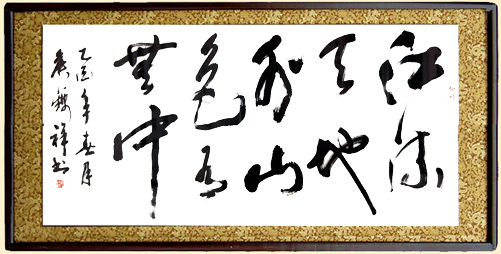 江流
天地
外山
色有
無中
乙酉年春月
祥书